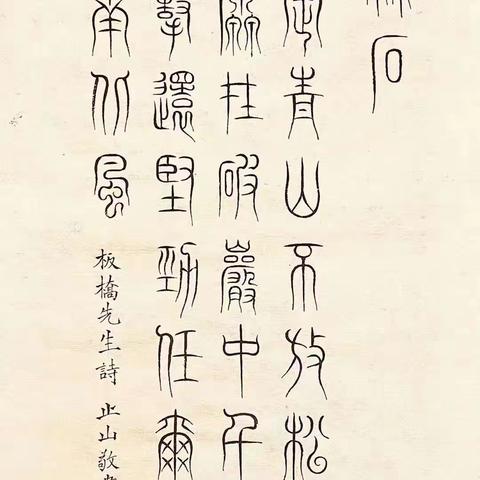 石
定青山不放松
原在破巖中千
擊還堅勁任爾
南北風
板橋先生詩 止山敬